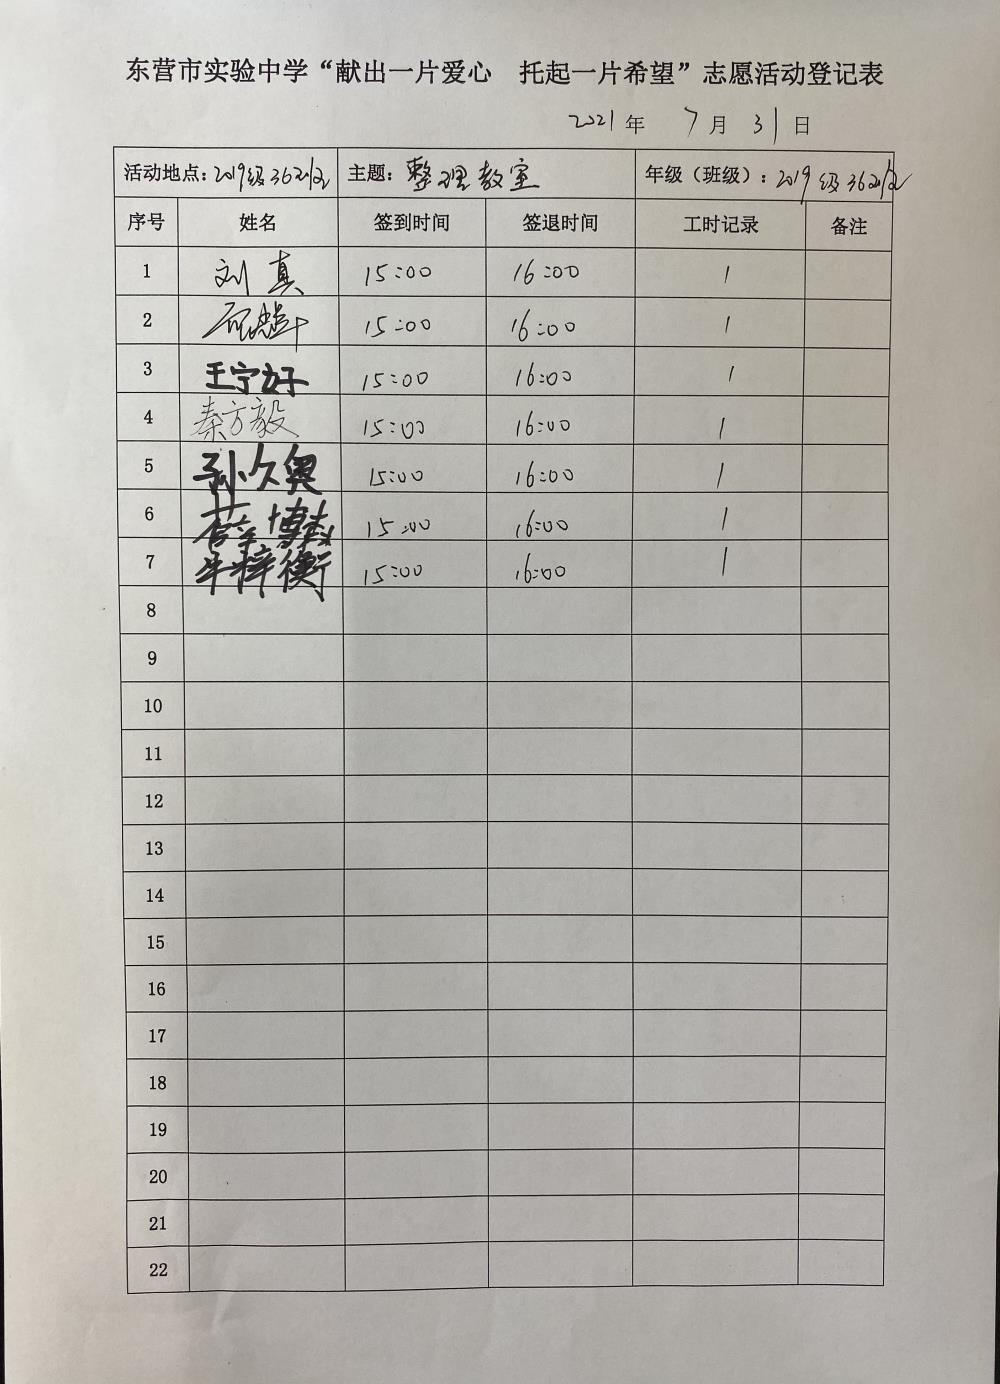 东营市实验中学“献出一片爱心　托起一片希望”志愿活动登记表
2021年 7月 31日
活动地点：2019级36 主题：整理教室 年级（班级）：2019级36
序号 姓名 签到时间 签退时间 工时记录 备注
1 刘真 15:00 16:00 1
2 15:00 16:00 1
3 王宁好 15:00 16:00 1
4 秦方毅 15:00 16:00 1
5 孙久奥 15:00 16:00 1
6 薛博 15:00 16:00 1
7 牛梓衡 15:00 16:00 1
8
9
10
11
12
13
14
15
16
17
18
19
20
21
22